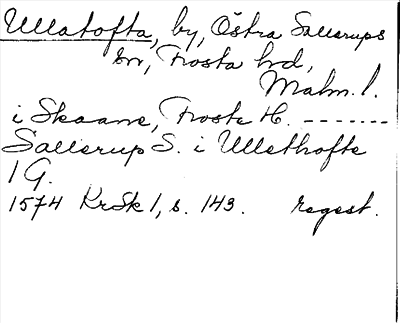 Ullatofta, by, Östra Sallerups
sn, Frosta hd,
Malm. l.
i Skaane, Froste H. -------
Sallerup S. i Ullethofte
1 G.
1574 KrSk 1, s. 143. regest.